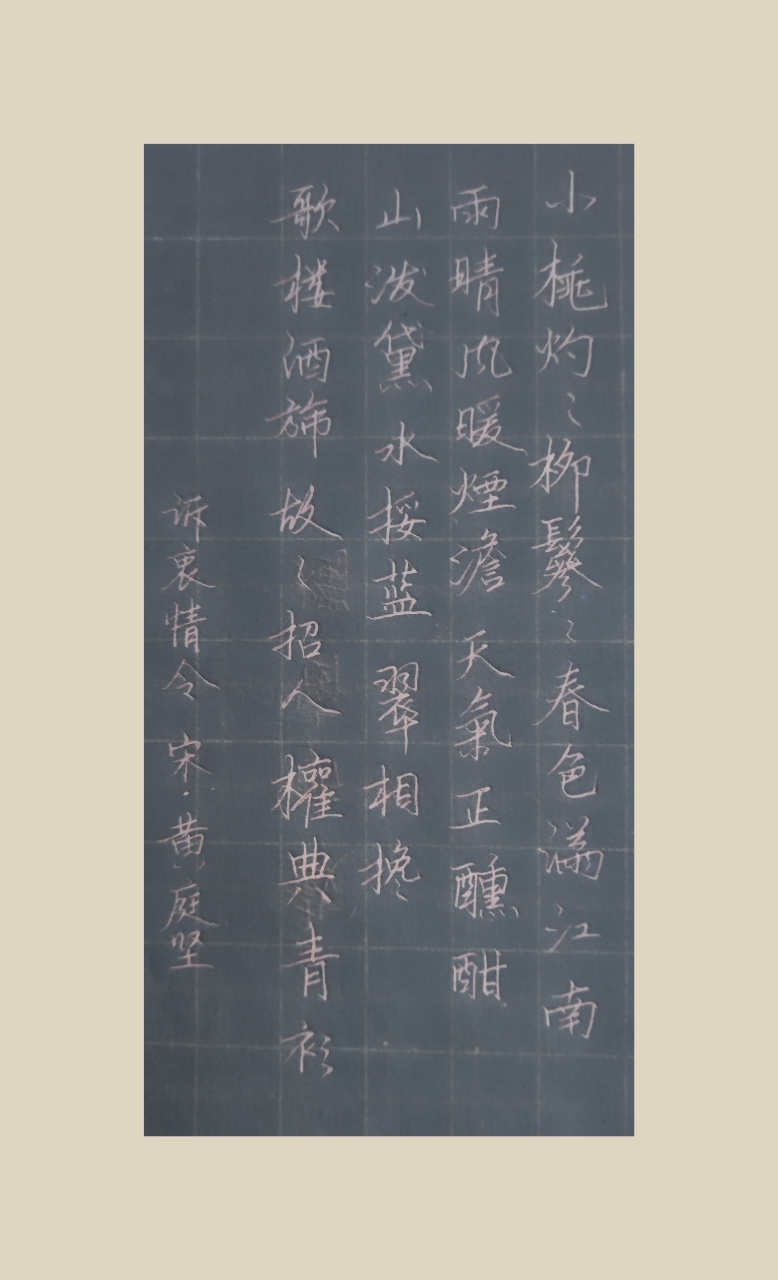 小桃灼〻柳鬖〻春色满江南
雨晴风暖煙澹天氣正醺酣
山泼黛水挼蓝翠相搀
歌楼酒旆故〻招人權典青衫
诉衷情令宋·黄庭坚